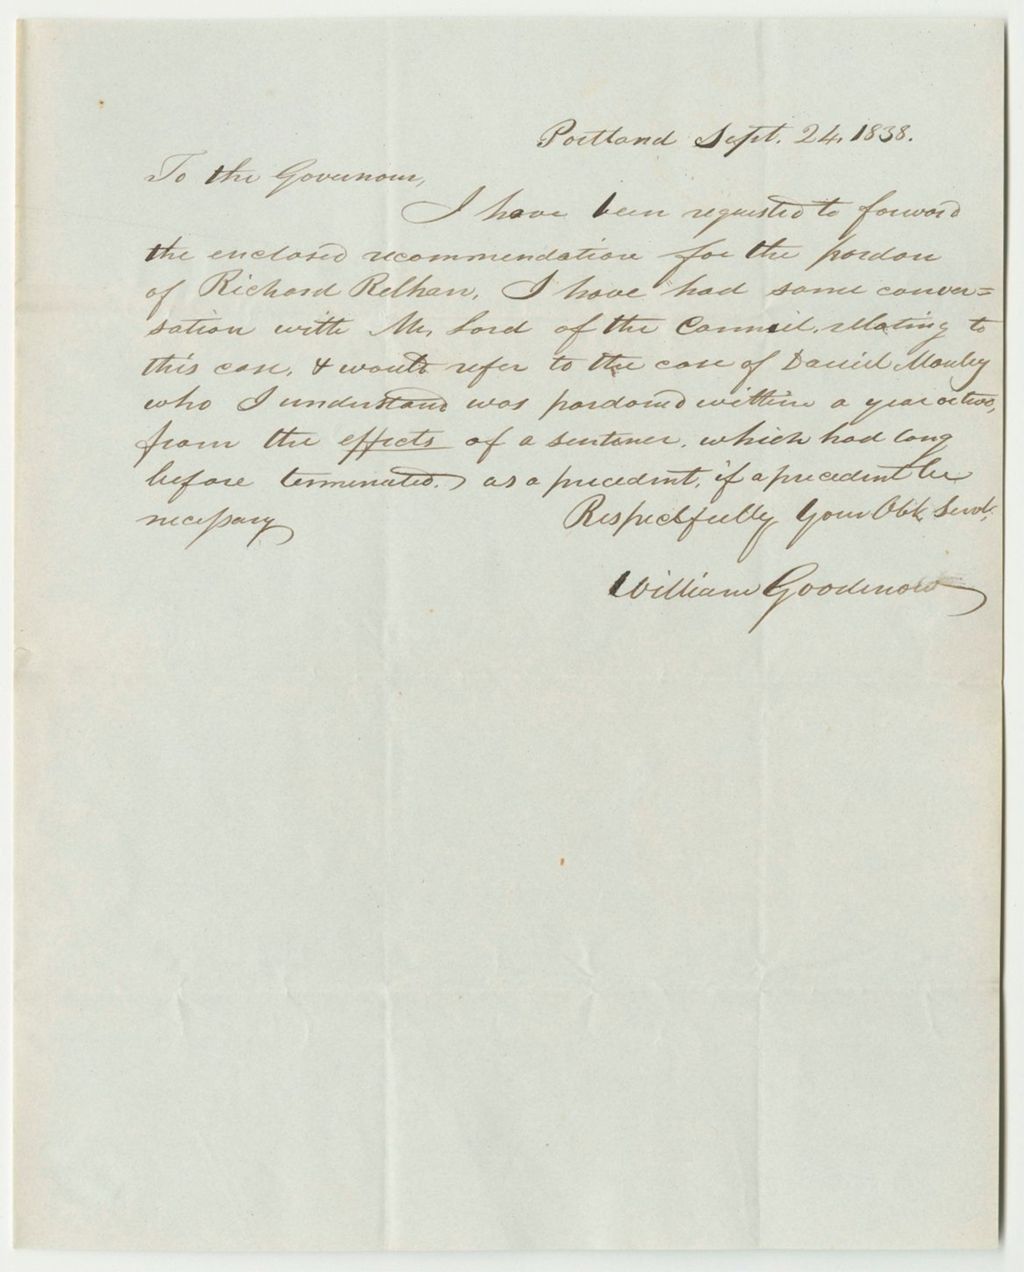 Portland Sept. 24, 1838.
To the Governour,
I have been requested to forward
the enclosed recommendation for the pardon
of Richard Relhan. I have had some conver=
sation with Mr. Lord of the Council, relating to
this case, & would refer to the case of Daniel Manley
who I understand was pardoned within a year or two,
from the effects of a sentence, which had long
before terminated, as a precedent, if a precedent be
necessary
Respectfully Your Obt. Servt.
William Goodenow